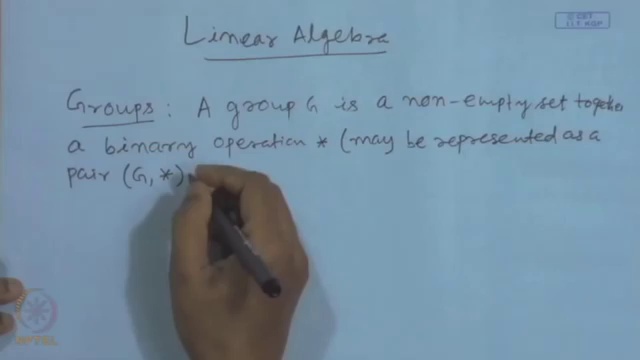 © CET
I.I.T. KGP
Linear Algebra
Groups : A group G is a non-empty set together
a binary operation * (may be represented as a
pair (G, *)
NPTEL